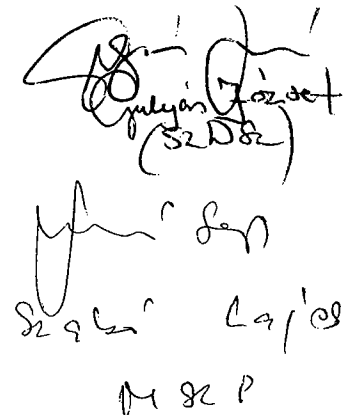 Gulyás József
(SZDSZ)
Szabó Lajos
MSZP